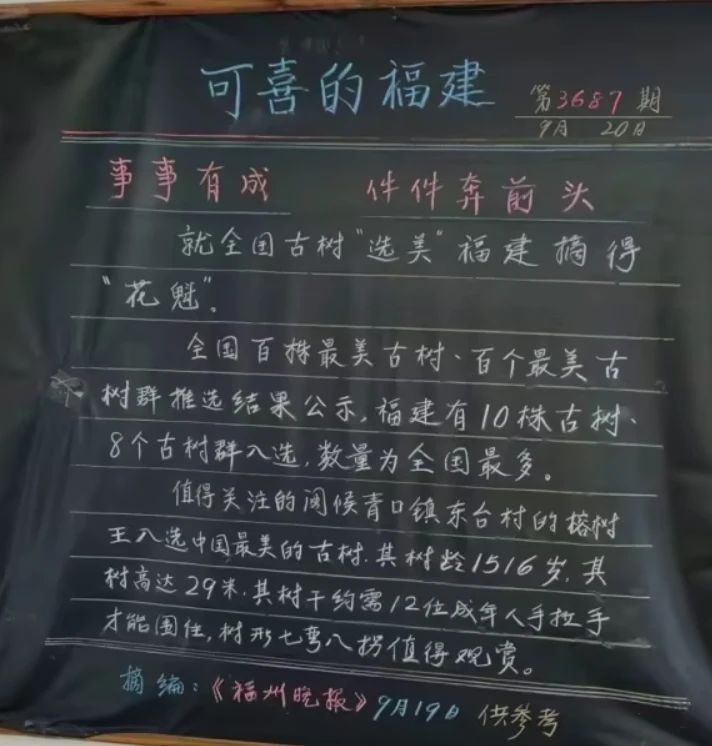 可喜的福建
第3687期
9月 20日
事事有成 件件奔前头
就全国古树“选美”福建摘得
“花魁”。
全国百株最美古树、百个最美古
树群推选结果公示,福建有10株古树、
8个古树群入选,数量为全国最多。
值得关注的闽候青口镇东台村的榕树
王入选中国最美的古树.其树龄1516岁.其
树高达29米.其树干约需12位成年人手拉手
才能围住,树形七弯八拐值得观赏。
摘编:《福州晚报》9月19日 供参考